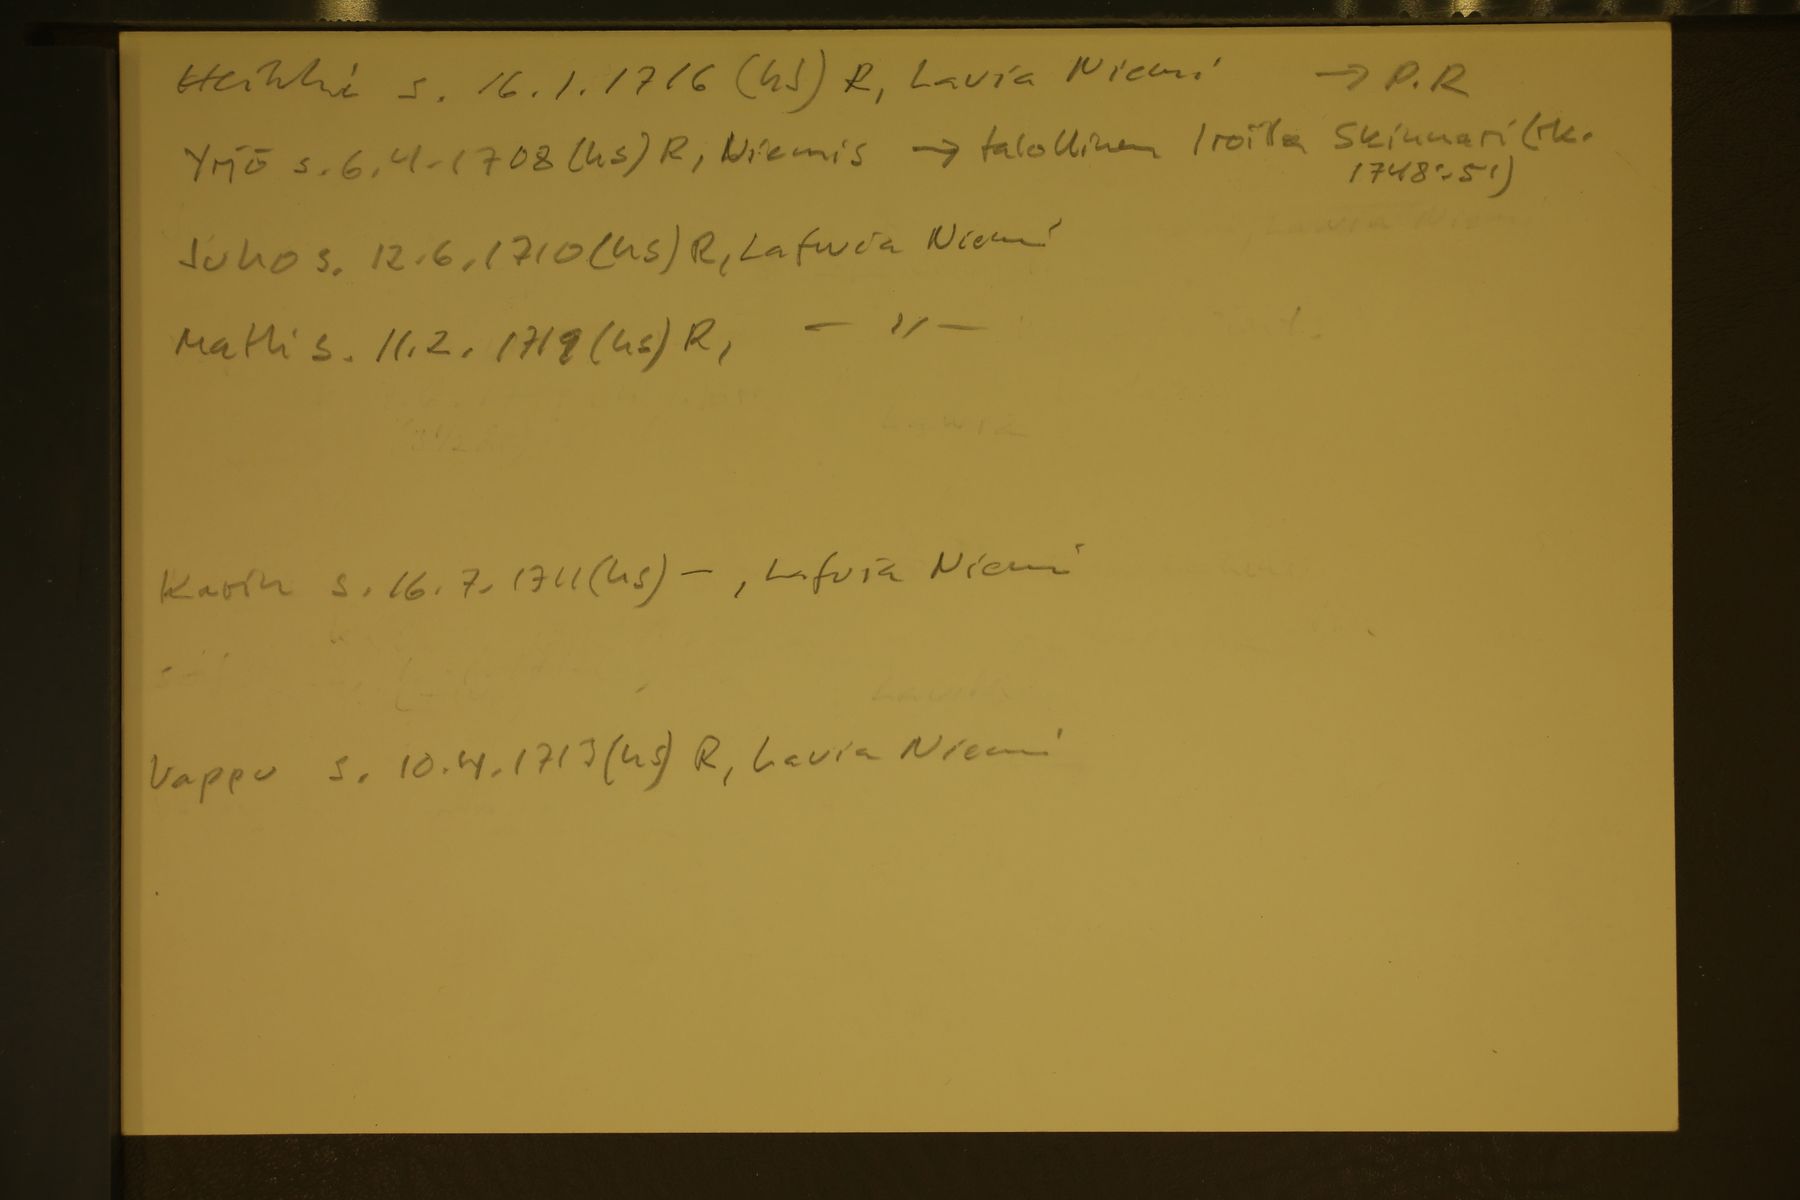 Heikki s. 16.1.1716 (hs) R, Lavia Niemi → P.R
Yrjö s. 6.4.1708 (hs) R, Niemis → talollinen Iroila Skinnari (rk.
1748:-51)
Juho s. 12.6.1710 (hs) R, Lafwia Niemi
Matti s. 11.2.1719 (hs) R, — " —
Karin s. 16.7.1711 (hs) – , Lafvia Niemi
Vappu s. 10.4.1713 (hs) R, Lavia Niemi